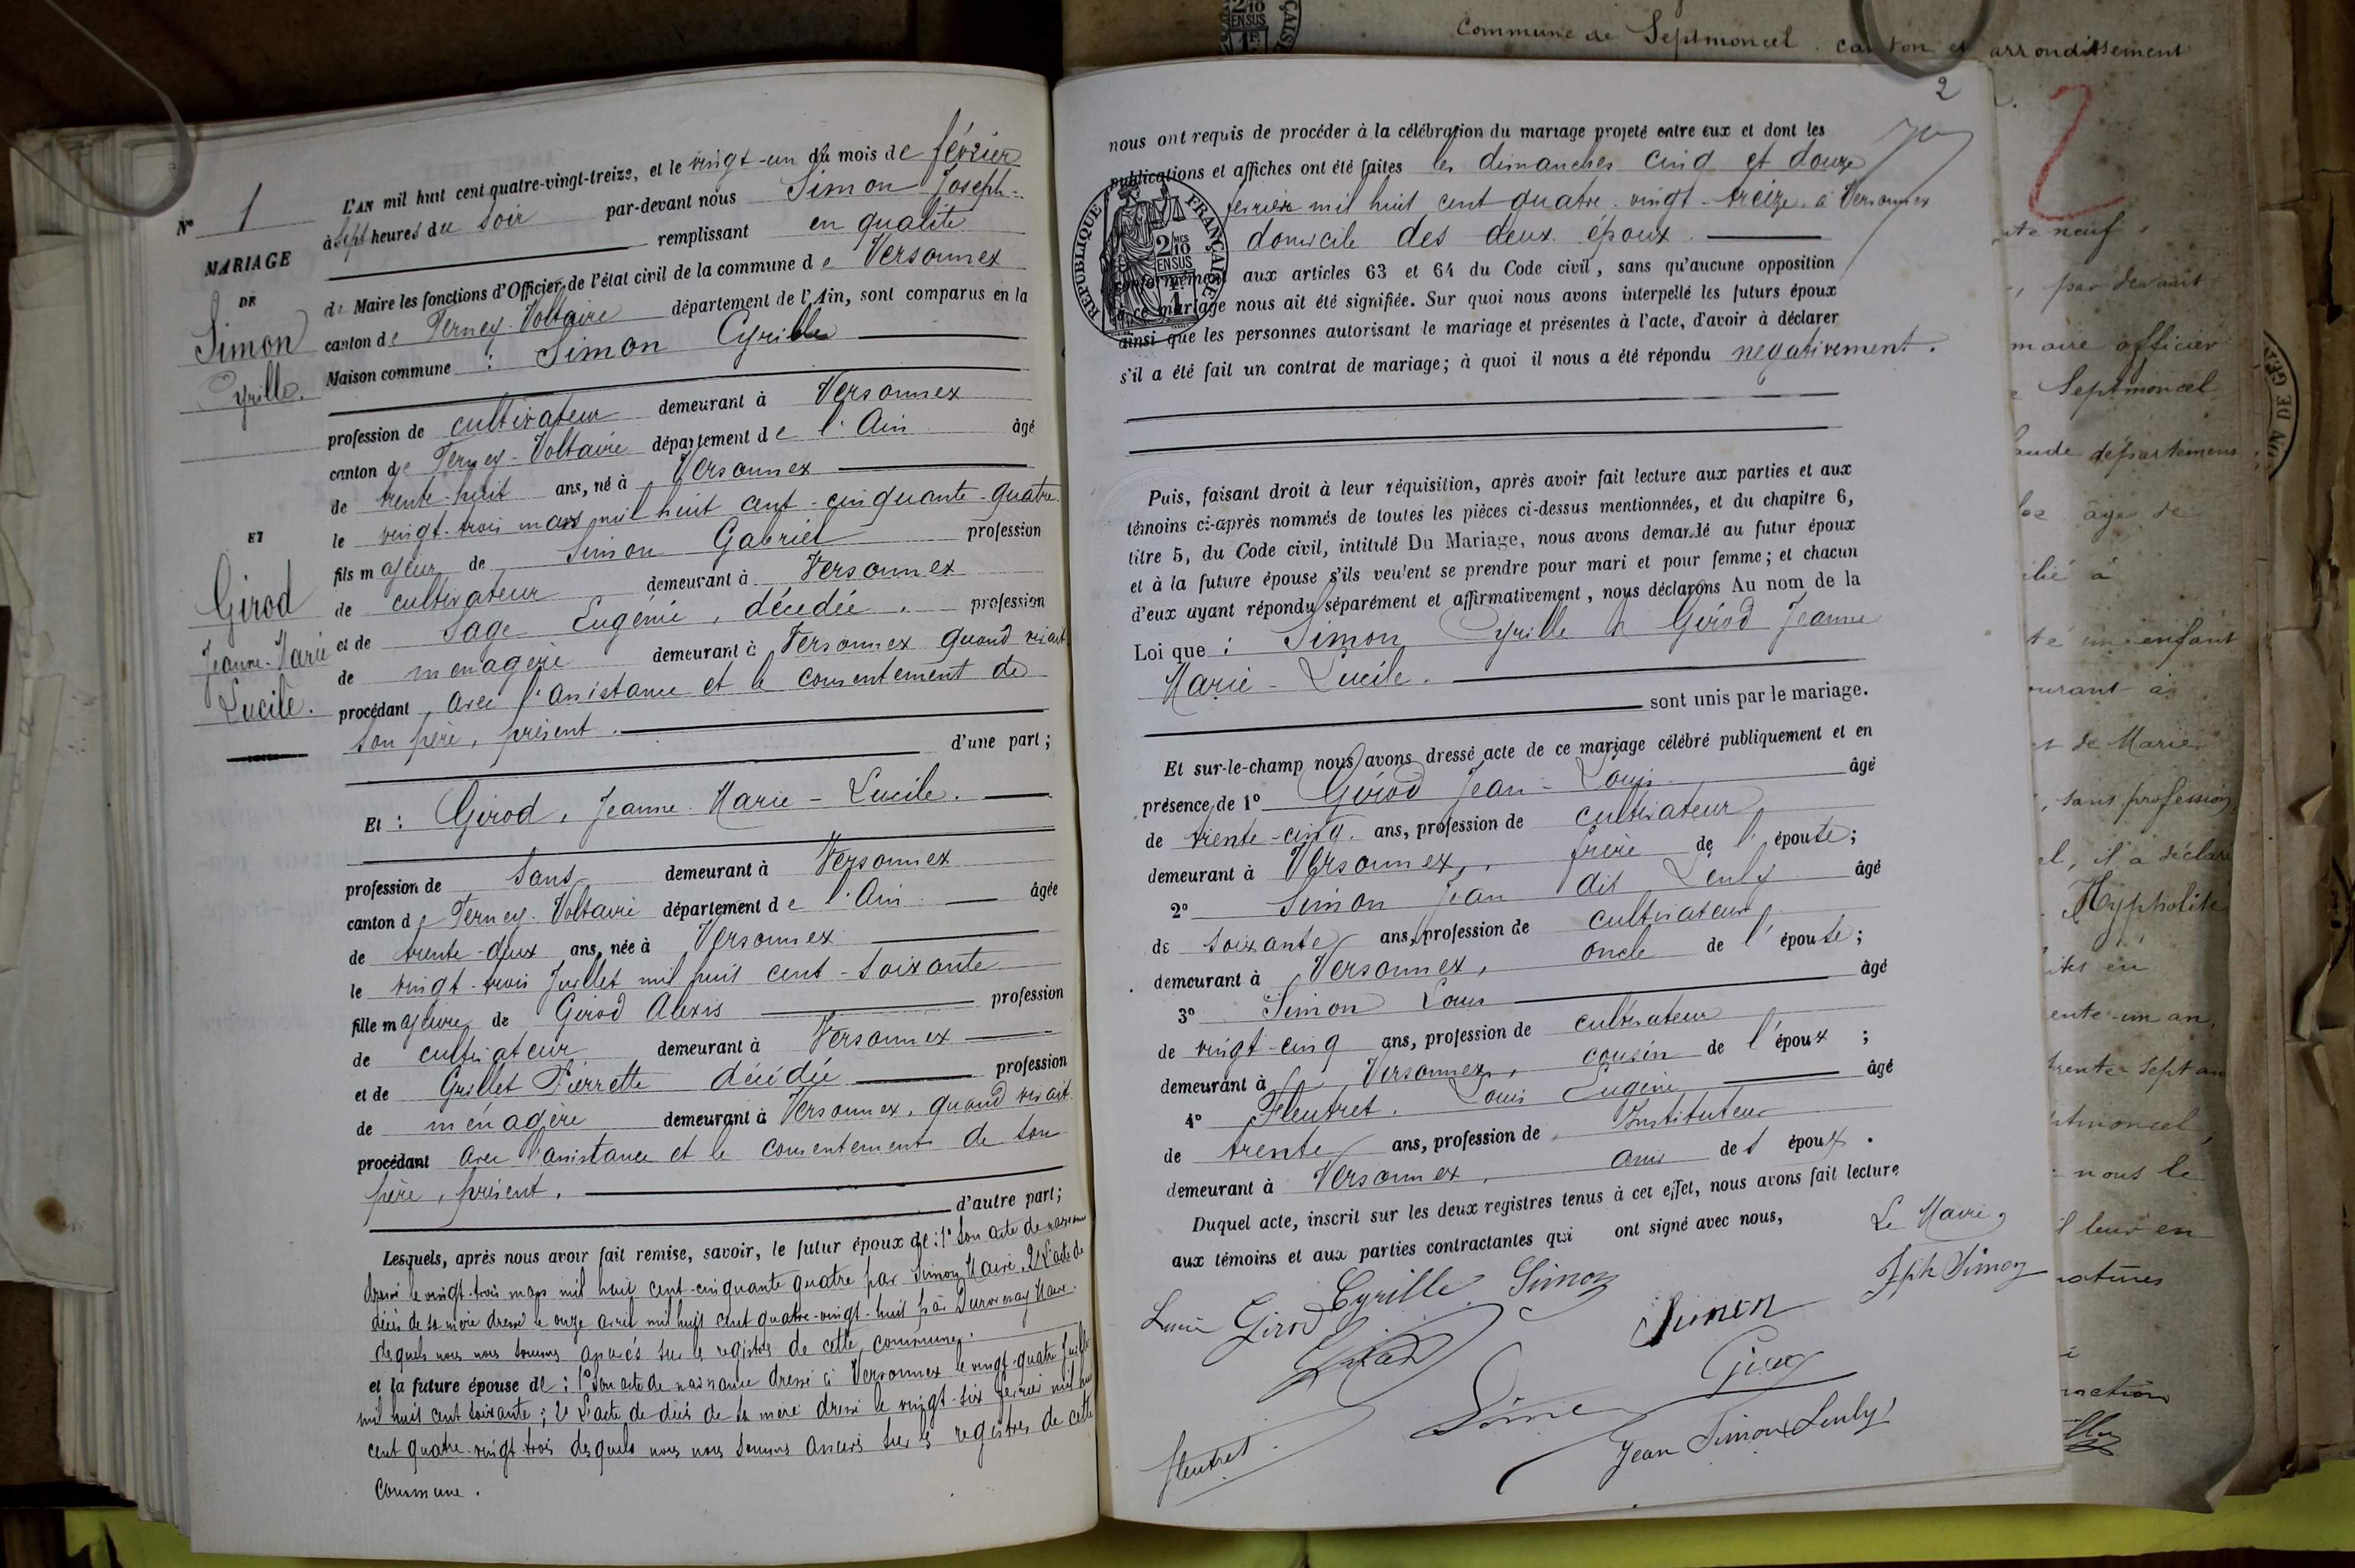 N° 1
MARIAGE
DE
Simon
Cyrille.
ET
Girod
Jeanne-Marie
Lucile.
L'AN mil huit cent quatre-vingt-treize, et le vingt-un du mois de février
à sept heures du soir par-devant nous Simon Joseph
remplissant en qualité
de Maire les fonctions d'Officier de l'état civil de la commune de Versonnex
canton de Ferney-Voltaire département de l'Ain, sont comparus en la
Maison commune : Simon Cyrille
profession de cultivateur demeurant à Versonnex
canton de Ferney-Voltaire département de l'Ain âgé
de trente-huit ans, né à Versonnex
le vingt-trois mars mil huit cent-cinquante-quatre
fils majeur de Simon Gabriel profession
de cultivateur demeurant à Versonnex
et de Sage Eugénie, décédée. profession
de ménagère demeurant à Versonnex quand vivait
procédant avec l'assistance et le consentement de
son père, présent.
d'une part;
Et : Girod, Jeanne-Marie-Lucile.
profession de sans demeurant à Versonnex
canton de Ferney-Voltaire département de l'Ain âgée
de trente-deux ans, née à Versonnex
le vingt-trois Juillet mil huit cent-soixante
fille majeure de Girod Alexis profession
de cultivateur demeurant à Versonnex
et de Grillet Pierrette décédée profession
de ménagère demeurant à Versonnex, quand vivait
procédant avec l'assistance et le consentement de son
père, présent.
d'autre part;
Lesquels, après nous avoir fait remise, savoir, le futur époux de : 1° son acte de naissance
dressé le vingt-trois mars mil huit cent-cinquante quatre par Simon Maire. 2° L'acte de
décès de sa mère dressé le onze avril mil huit cent quatre-vingt-huit par Maire.
desquels nous nous sommes assurés sur les registres de cette commune.
et la future épouse de : 1° son acte de naissance dressé à Versonnex le vingt-quatre Juillet
mil huit cent soixante ; 2° L'acte de décès de sa mère dressé le vingt-six février mil huit
cent quatre-vingt-trois desquels nous nous sommes assurés sur les registres de cette
commune.
Commune de Septmoncel. canton et arrondissement
2
nous ont requis de procéder à la célébration du mariage projeté entre eux et dont les
publications et affiches ont été faites les dimanches cinq et douze
février mil huit cent quatre-vingt-treize, à Versonnex
domicile des deux époux.
conformément aux articles 63 et 64 du Code civil, sans qu'aucune opposition
à ce mariage nous ait été signifiée. Sur quoi nous avons interpellé les futurs époux
ainsi que les personnes autorisant le mariage et présentes à l'acte, d'avoir à déclarer
s'il a été fait un contrat de mariage; à quoi il nous a été répondu négativement.
RÉPUBLIQUE FRANÇAISE
2/10 EN SUS
Puis, faisant droit à leur réquisition, après avoir fait lecture aux parties et aux
témoins ci-après nommés de toutes les pièces ci-dessus mentionnées, et du chapitre 6,
titre 5, du Code civil, intitulé Du Mariage, nous avons demandé au futur époux
et à la future épouse s'ils veulent se prendre pour mari et pour femme; et chacun
d'eux ayant répondu séparément et affirmativement, nous déclarons Au nom de la
Loi que : Simon Cyrille & Girod Jeanne
Marie-Lucile.
sont unis par le mariage.
Et sur-le-champ nous avons dressé acte de ce mariage célébré publiquement et en
présence de 1° Girod Jean-Louis âgé
de trente-cinq ans, profession de cultivateur
demeurant à Versonnex, frère de l'épouse;
2° Simon Jean dit Lenly âgé
de soixante ans, profession de cultivateur
demeurant à Versonnex, oncle de l'épouse;
3° Simon Louis âgé
de vingt-cinq ans, profession de cultivateur
demeurant à Versonnex, cousin de l'époux ;
4° Fleutret. Louis Eugène âgé
de trente ans, profession de Instituteur
demeurant à Versonnex, ami de l'époux.
Duquel acte, inscrit sur les deux registres tenus à cet effet, nous avons fait lecture
aux témoins et aux parties contractantes qui ont signé avec nous,
Le Maire,
Jph Simon
Cyrille Simon
Lucie Girod
Simon
Girod
Simon
Jean Simon Lenly
fleutret
2
neuf,
, par devant
maire officier
Septmoncel
aude département
âgé de
ilié à
té un enfant
urant à
et de Marie
, sans profession
el, il a déclaré
Hyppolite
ente-un an,
trente sept an
tmoncel,
nous le
il leur en
natures